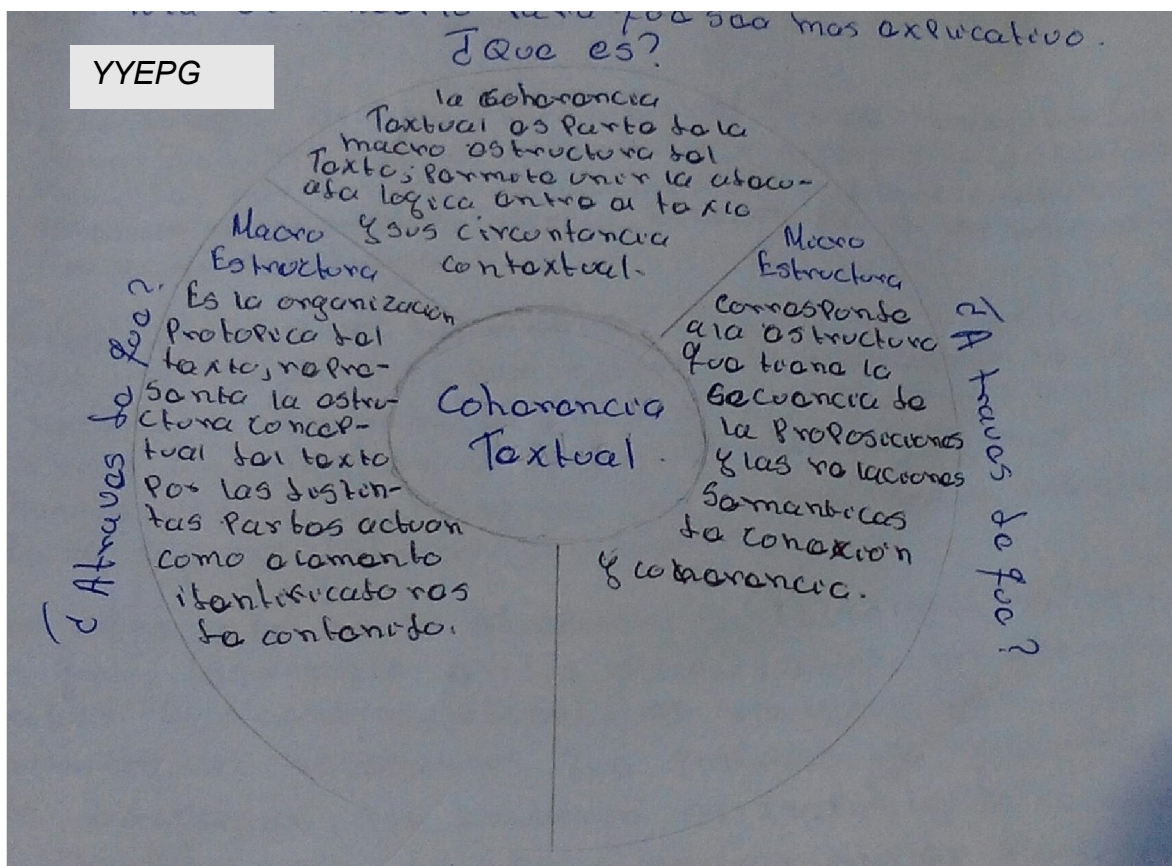 mas explicativo.
¿Que es?
YYEPG
la coherencia
Textual es Parte de la
macro estructura del
Texto; permete unir la adecu-
ada logica entre el texto
y sus circuntancia
contextual.
Macro
Estructura
Es la organización
Protopica del
texto, repre-
senta la estru-
ctura concep-
tual del texto
Por las distin-
tas Partes actuan
como elemento
identificatoros
de contenido.
¿Atraves de que?
Coherencia
Textual.
Micro
Estructura
corresponde
a la estructura
que tiene la
secuencia de
la Proposiciones
y las relaciones
semanticas
de conexión
y coherencia.
¿A traves de que?